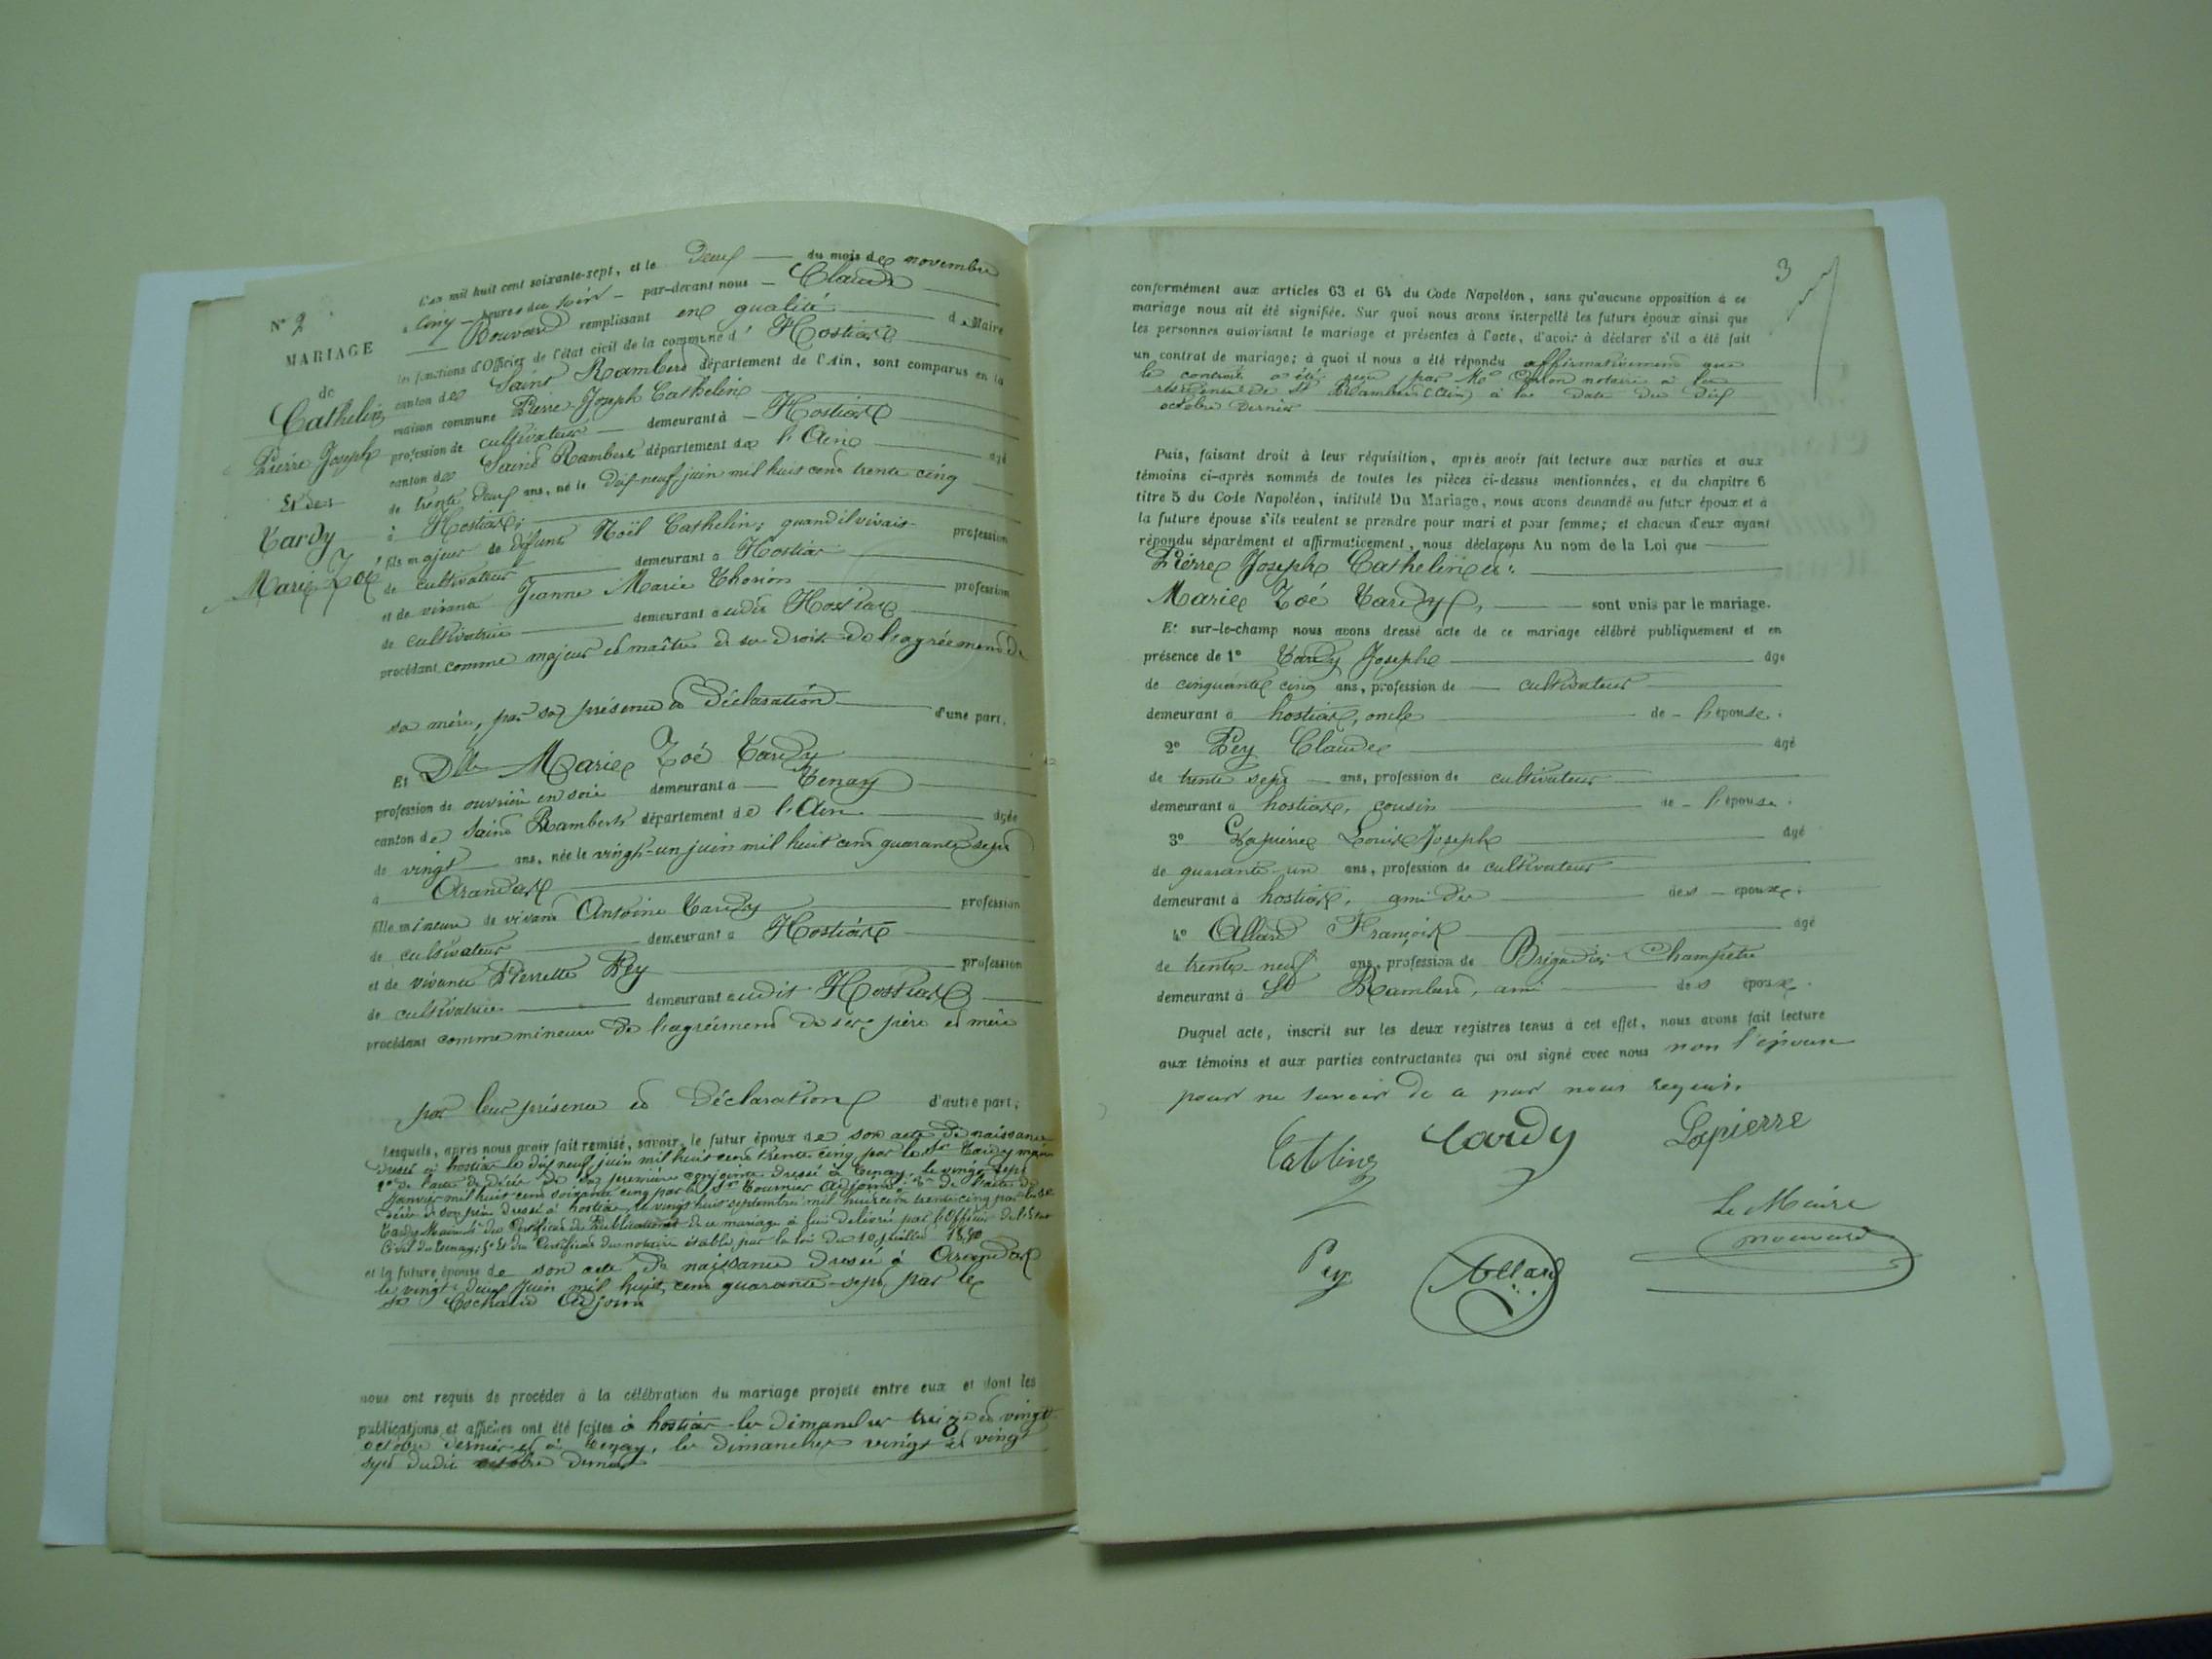 N° 2
MARIAGE
de
Cathelin
Pierre Joseph
Et de
Tardy
Marie Zoé
L'an mil huit cent soixante-sept, et le deux du mois de novembre
à cinq heures du soir par-devant nous Claude
Bouvard remplissant en qualité de Maire
les fonctions d'Officier de l'état civil de la commune d' Hostiaz
canton de Saint Rambert département de l'Ain, sont comparus en la
maison commune Pierre Joseph Cathelin
profession de cultivateur demeurant à Hostiaz
canton de Saint Rambert département de l'Ain âgé
de trente deux ans, né le dix-neuf juin mil huit cent trente cinq
à Hostiaz;
fils majeur de défunt Noël Cathelin, quand il vivait profession
de cultivateur demeurant à Hostiaz
et de vivante Jeanne Marie Thorion profession
de cultivatrice demeurant audit Hostiaz
procédant comme majeur et maître de ses droits de l'agrément de
sa mère, par sa présence et déclaration d'une part,
Et Dlle Marie Zoé Tardy
profession de ouvrière en soie demeurant à Tenay
canton de Saint Rambert département de l'Ain âgée
de vingt ans, née le vingt-un juin mil huit cent quarante sept
à Arandas
fille mineure de vivant Antoine Tardy profession
de cultivateur demeurant à Hostiaz
et de vivante Pierrette Pey profession
de cultivatrice demeurant audit Hostiaz
procédant comme mineure de l'agrément de ses père et mère
par leur présence et déclaration d'autre part;
Lesquels, après nous avoir fait remise, savoir, le futur époux de son acte de naissance
dressé à hostiaz le dix neuf juin mil huit cent trente cinq, par le Sr Tardy maire
2° de l'acte de décès de sa première conjointe dressé à Tenay, le vingt sept
Janvier mil huit cent soixante cinq par le Sr Tournier Adjoint, 3° de l'acte de
décès de son père dressé à hostiaz, le vingt huit septembre mil huit cent trente cinq par le Sr
Tardy Maire 4° des Certificat de Publications de ce mariage à lui délivré par l'Officier de l'Etat
Civil de Tenay; 5° Et du Certificat du notaire établi par la loi du 10 juillet 1850
et la future épouse de son acte de naissance dressé à Arandas
le vingt-deux Juin mil huit cent quarante-sept par le
Sr Cochard Adjoint
nous ont requis de procéder à la célébration du mariage projeté entre eux et dont les
publications et affiches ont été faites à hostiaz les dimanches treize et vingt
octobre dernier et à Tenay, les dimanches vingt et vingt
sept dudit octobre dernier
3
conformément aux articles 63 et 64 du Code Napoléon, sans qu'aucune opposition à ce
mariage nous ait été signifiée. Sur quoi nous avons interpellé les futurs époux ainsi que
les personnes autorisant le mariage et présentes à l'acte, d'avoir à déclarer s'il a été fait
un contrat de mariage; à quoi il nous a été répondu affirmativement que
le contrat a été reçu par Me notaire à la
résidence de St Rambert (Ain) à la date du dix
octobre dernier
Puis, faisant droit à leur réquisition, après avoir fait lecture aux parties et aux
témoins ci-après nommés de toutes les pièces ci-dessus mentionnées, et du chapitre 6
titre 5 du Code Napoléon, intitulé Du Mariage, nous avons demandé au futur époux et à
la future épouse s'ils veulent se prendre pour mari et pour femme; et chacun d'eux ayant
répondu séparément et affirmativement, nous déclarons Au nom de la Loi que
Pierre Joseph Cathelin et
Marie Zoé Tardy, sont unis par le mariage.
Et sur-le-champ nous avons dressé acte de ce mariage célébré publiquement et en
présence de 1° Tardy Joseph âgé
de cinquante cinq ans, profession de cultivateur
demeurant à hostiaz, oncle de l'épouse.
2° Pey Claude âgé
de trente sept ans, profession de cultivateur
demeurant à hostiaz, cousin de l'épouse.
3° Lapierre Louis Joseph âgé
de quarante-un ans, profession de cultivateur
demeurant à hostiaz, ami des époux.
4° Allard François âgé
de trente-neuf ans, profession de Brigadier Champêtre
demeurant à St Rambert, ami des époux.
Duquel acte, inscrit sur les deux registres tenus à cet effet, nous avons fait lecture
aux témoins et aux parties contractantes qui ont signé avec nous non l'épouse
pour ne savoir de ce par nous requis.
Catelin Tardy Lapierre
Le Maire
Pey Allard Bouvard